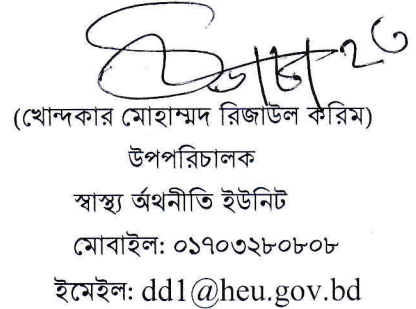 (খোন্দকার মোহাম্মদ রিজাউল করিম)
উপপরিচালক
স্বাস্থ্য র্অথনীতি ইউনিট
মোবাইল: ০১৭০৩২৮০৮০৮
ইমেইল: dd1@heu.gov.bd